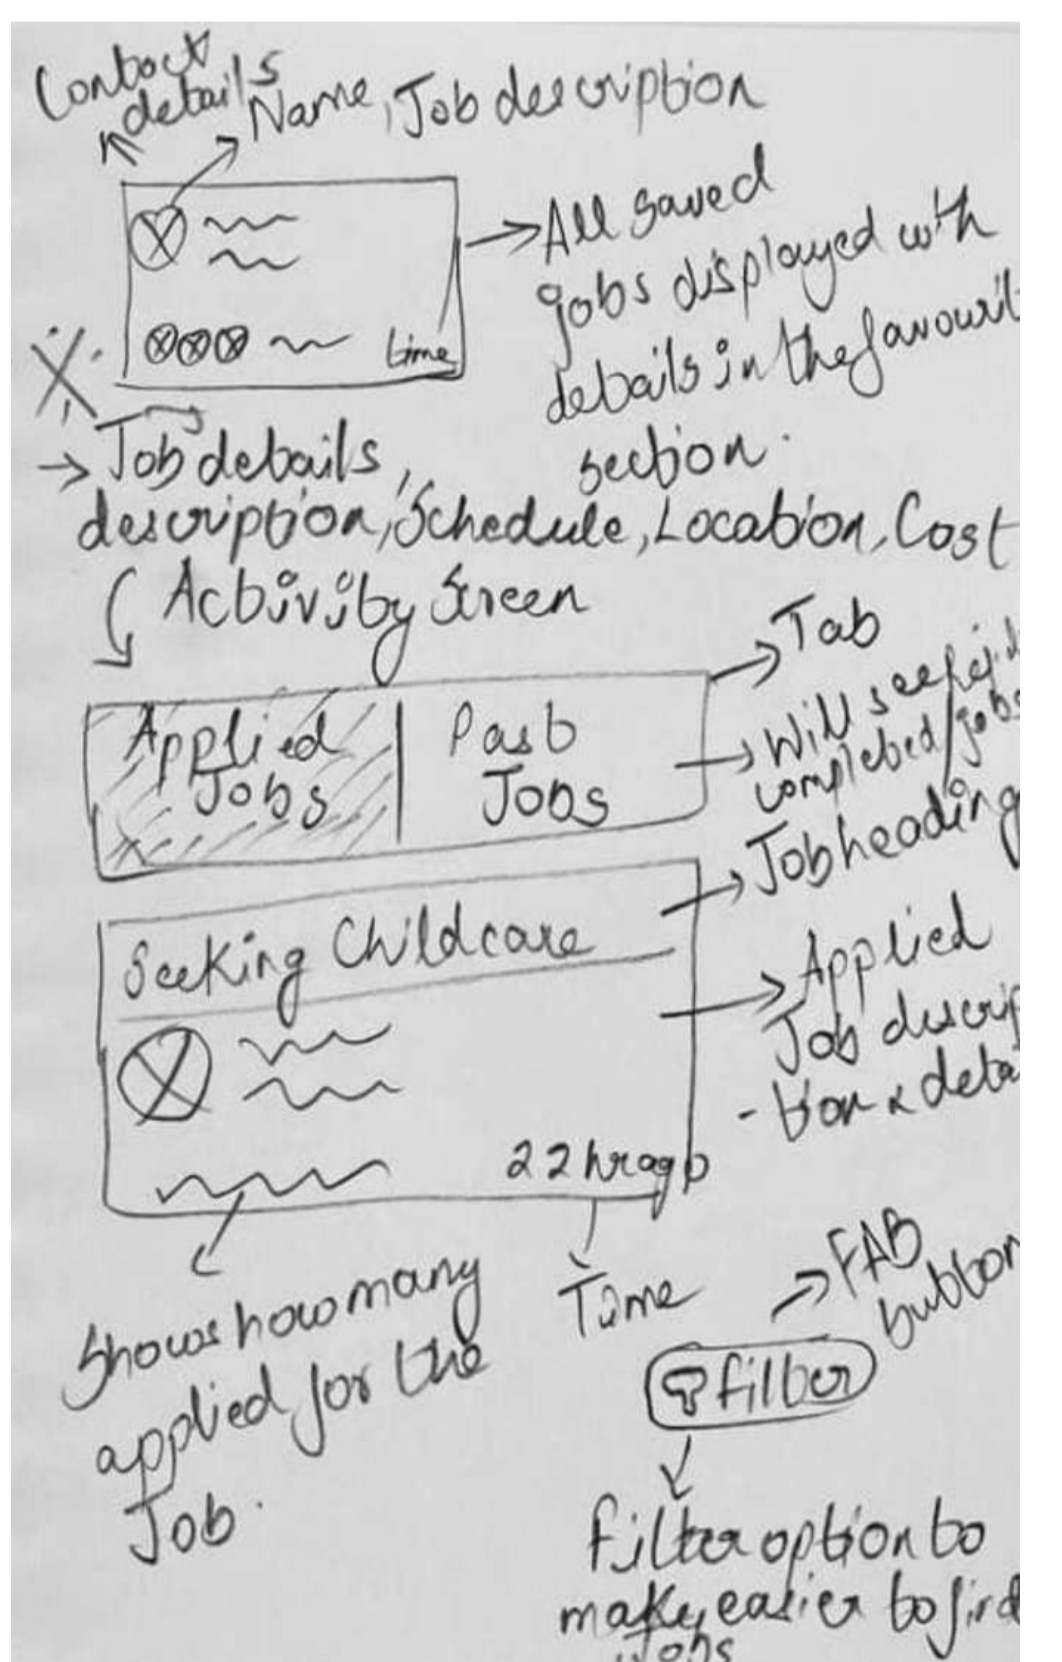 Contact
details
Name, Job description
All saved
jobs displayed with
details in the favourit
section.
time
Job details,
description, Schedule, Location, Cost
Activity Screen
Tab
Applied
Jobs
Past
Jobs
Will see
completed/jobs
Job heading
Seeking Childcare
Applied
Job descrip
-tion & detai
22hr ago
Shows how many
applied for the
Job.
Time
FAB
button
filter
filter option to
make easier to find
Jobs